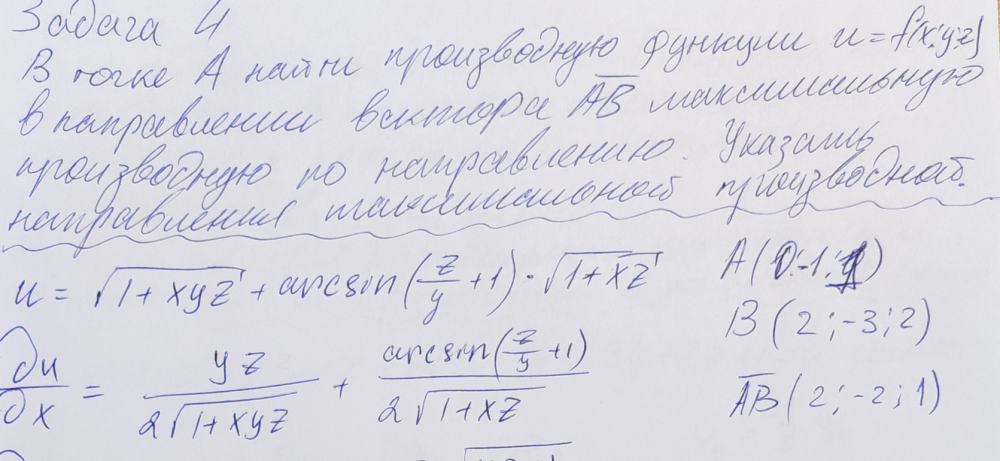 Задача 4
В точке А найти производную функции u=f(x;y;z)
в направлении вектора AB максимальную
производную по направлению. Указать
направления максимальной производной.
u = √(1+xyz) + arcsin(z/y +1)·√(1+xz) A(0;-1;1)
B(2;-3;2)
∂u/∂x = yz/(2√(1+xyz)) + arcsin(z/y +1)/(2√(1+xz)) AB(2;-2;1)